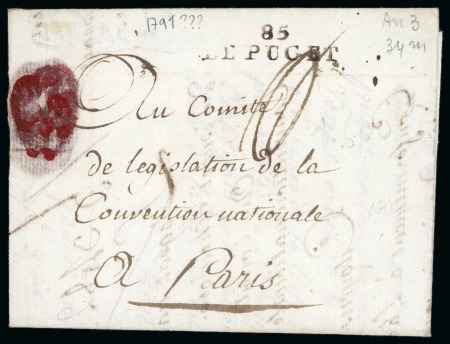 1791???
85
LE PUGET
An 3
34 m
Au Comité
de legislation de la
Convention nationale
A Paris